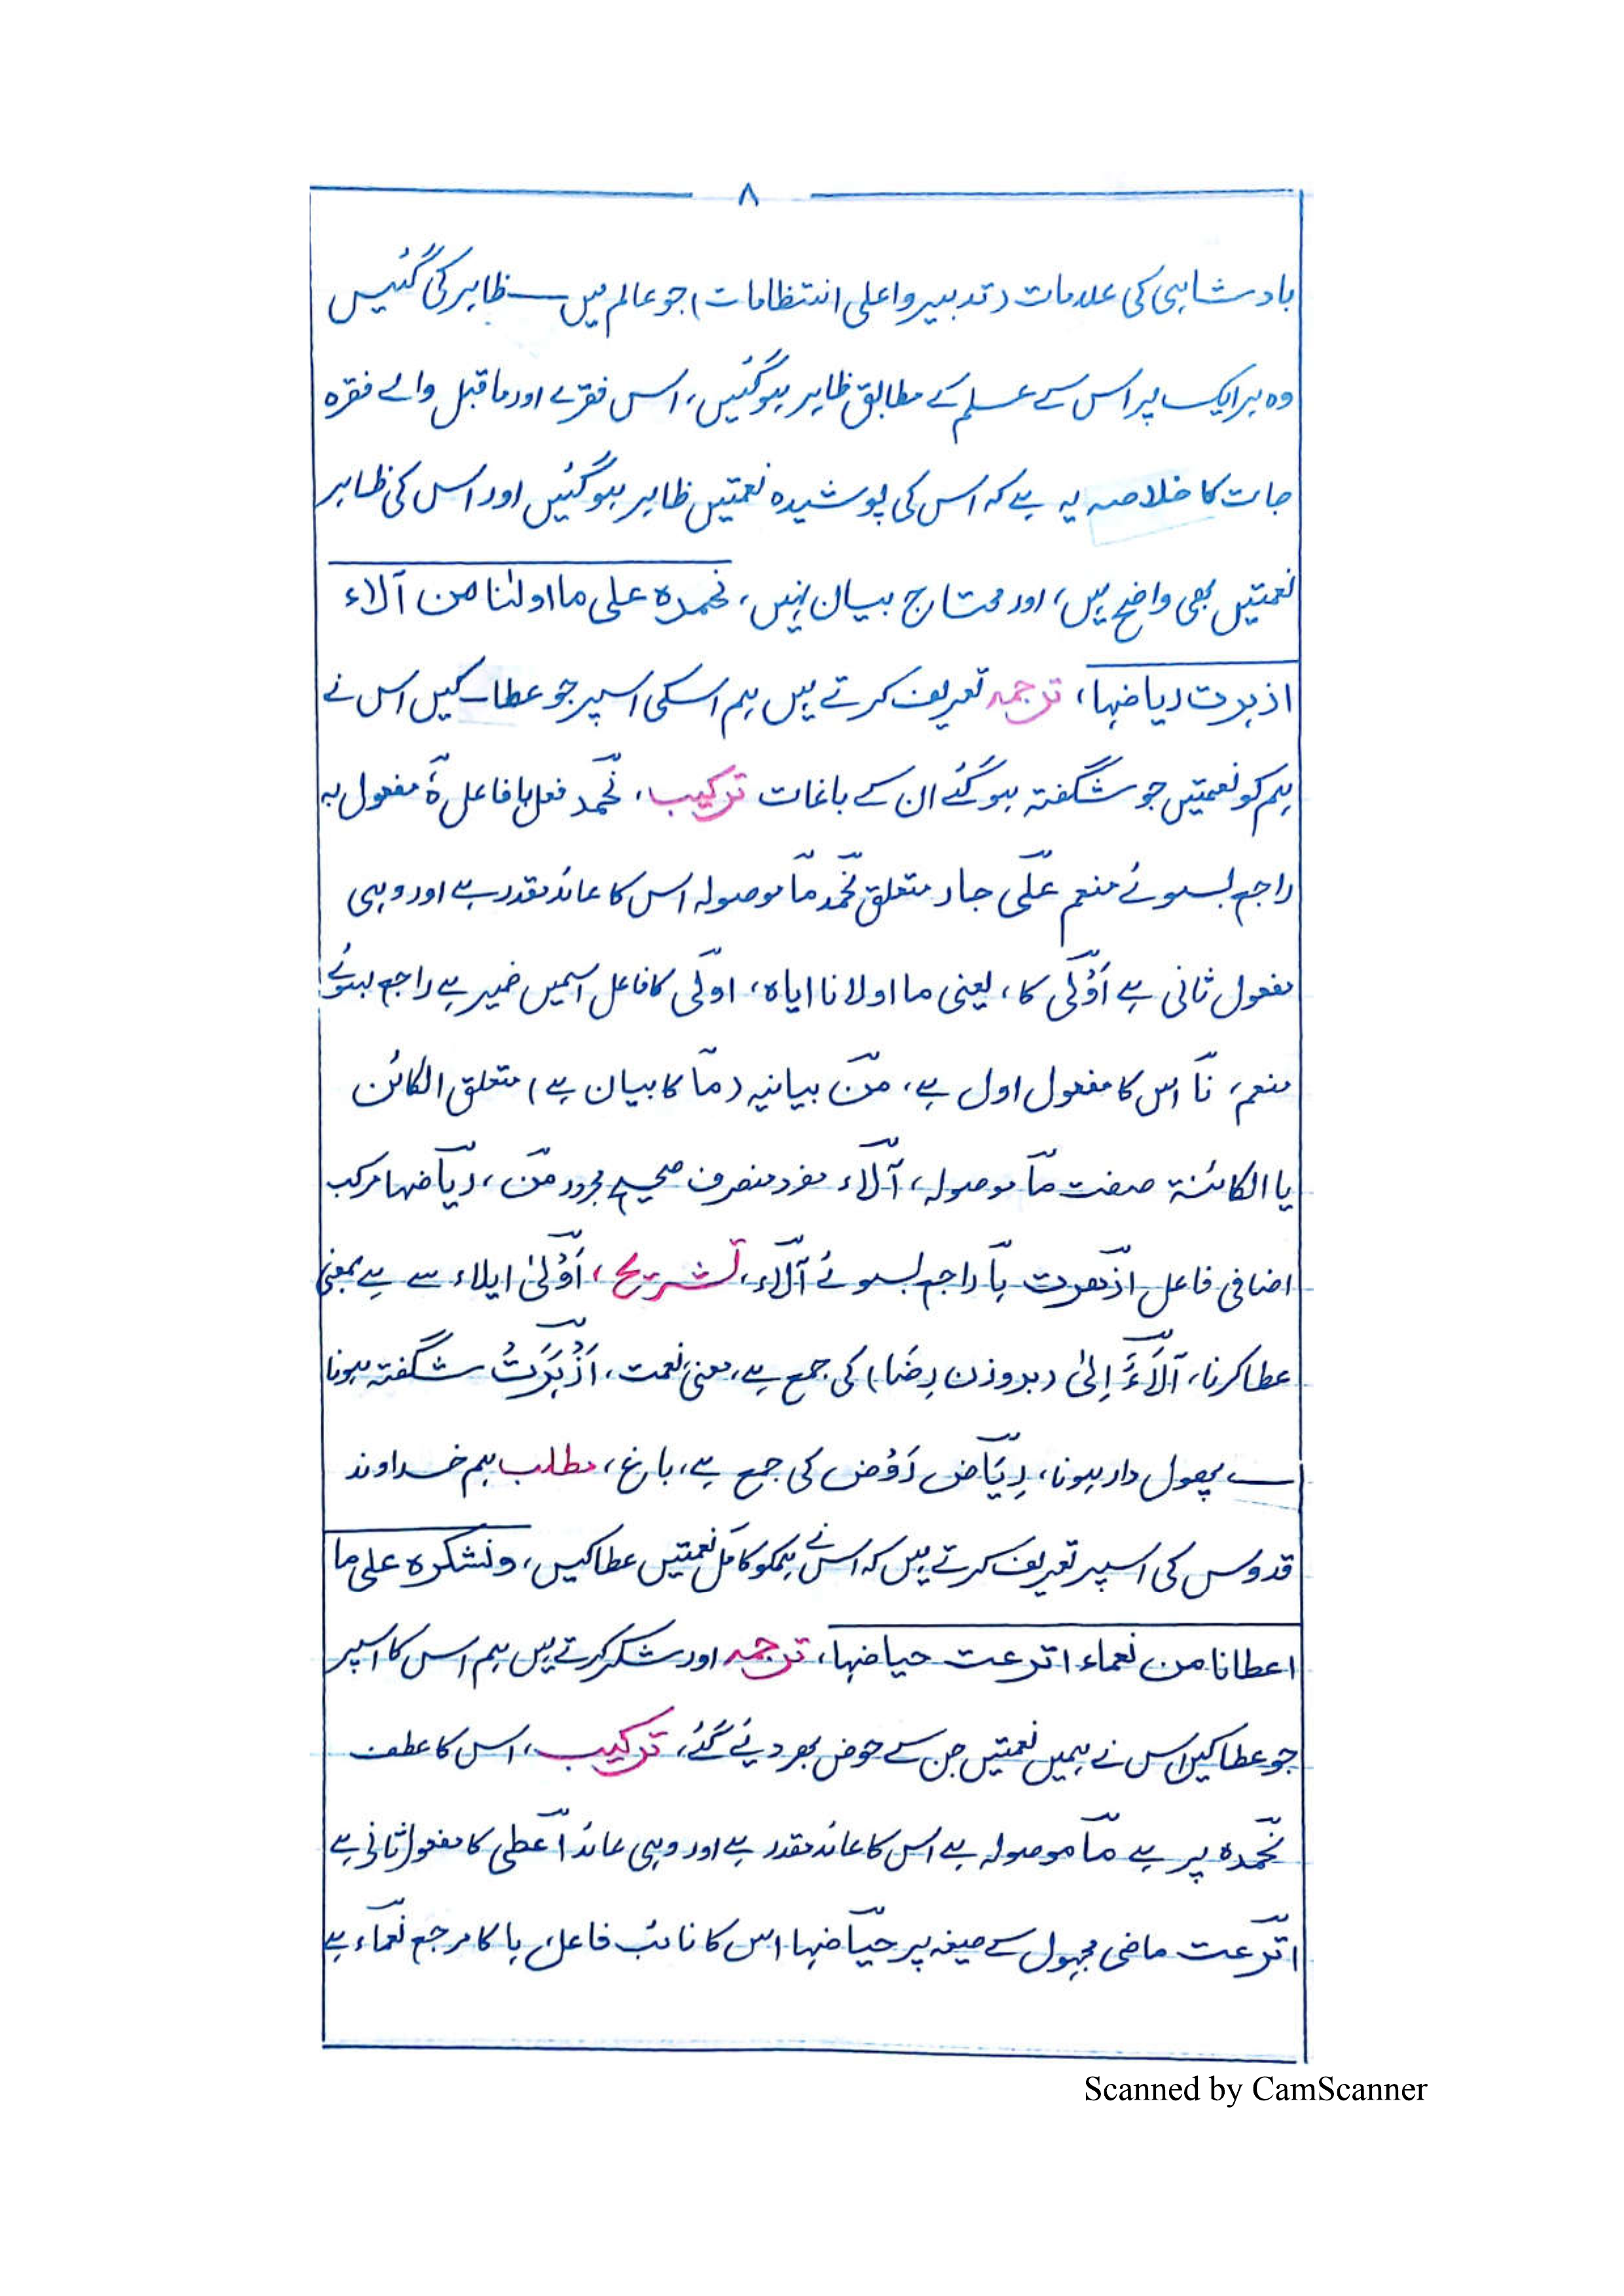 ٨
بادشاہی کی علامات (تدبیر واعلی انتظامات) جو عالم میں ظاہر کی گئیں
وہ ہر ایک پر اس کے علم کے مطابق ظاہر ہوگئیں، اس فقرے اور ماقبل والے فقرہ
جات کا خلاصہ یہ ہے کہ اس کی پوشیدہ نعمتیں ظاہر ہوگئیں اور اس کی ظاہر
نعمتیں بھی واضح ہیں، اور محتاج بیان نہیں، نحمدہ علی ما اولٰنا من آلاء
ازہرت ریاضہا، ترجمہ تعریف کرتے ہیں ہم اسکی اسپر جو عطا کیں اس نے
ہم کو نعمتیں جو شگفتہ ہوگئے ان کے باغات ترکیب، نحمد فعل با فاعل ہٗ مفعول بہ
راجع بسوئے منعم علی جار متعلق نحمد ما موصولہ اس کا عائد مقدر ہے اور وہی
مفعول ثانی ہے اَوْلی کا، یعنی ما اولانا ایاہ، اولی کا فاعل اسمیں ضمیر ہے راجع بسوئے
منعم، نا اس کا مفعول اول ہے، من بیانیہ (ما کا بیان ہے) متعلق الکائن
یا الکائنۃ صفت ما موصولہ، آلاء مفرد منصرف صحیح مجرور من، ریاضہا مرکب
اضافی فاعل ازھرت ہا راجع بسوئے آلاء، تشریح، اَوْلیٰ ایلاء سے ہے بمعنی
عطا کرنا، آلَاءَ اِلیٰ (بروزن رِضَا) کی جمع ہے، معنی نعمت، اَزْہَرَتْ شگفتہ ہونا
پھول دار ہونا، رِیَاض رَوْض کی جمع ہے، باغ، مطلب ہم خداوند
قدوس کی اسپر تعریف کرتے ہیں کہ اس نے ہمکو کامل نعمتیں عطا کیں، ونشکرہ علی ما
اعطانا من نعماء اترعت حیاضہا، ترجمہ اور شکر کرتے ہیں ہم اس کا اسپر
جو عطا کیں اس نے ہمیں نعمتیں جن سے حوض بھر دیئے گئے، ترکیب، اس کا عطف
نحمدہ پر ہے ما موصولہ ہے اس کا عائد مقدر ہے اور وہی عائد اعطی کا مفعول ثانی ہے
اترعت ماضی مجہول کے صیغہ پر حیاضہا اس کا نائب فاعل، ہا کا مرجع نعماء ہے
Scanned by CamScanner